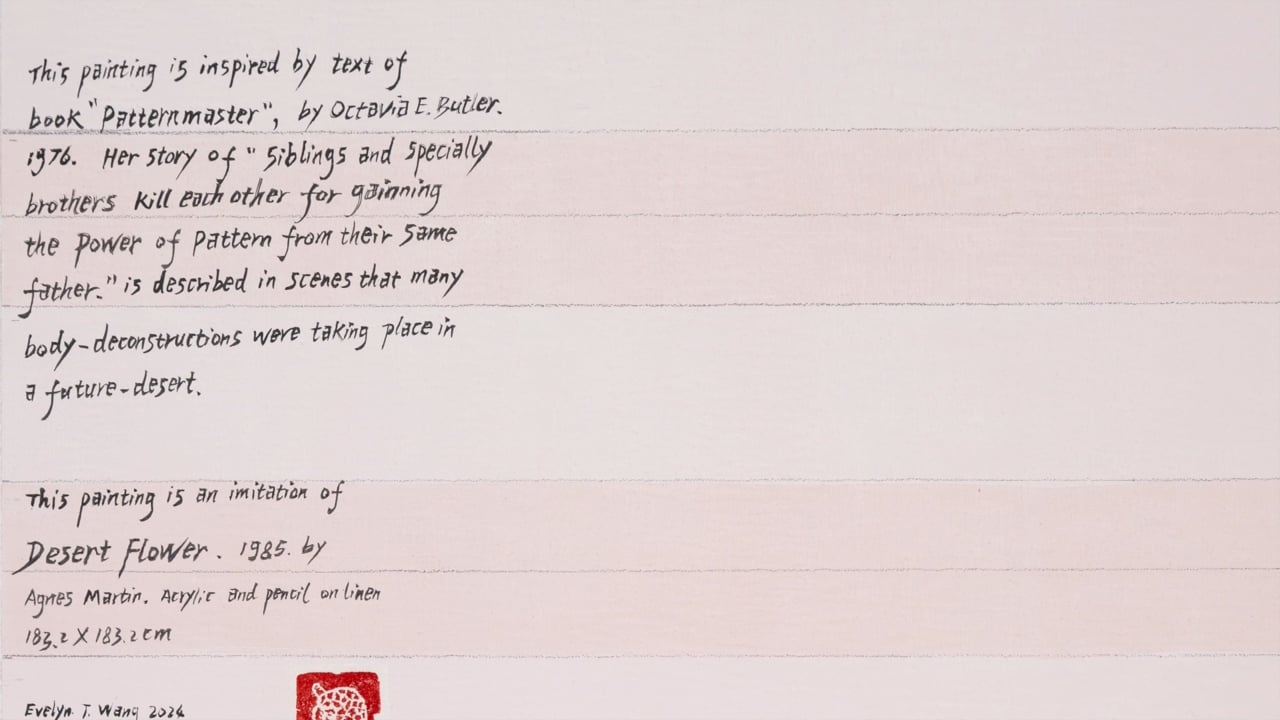 This painting is inspired by text of
book "Patternmaster", by Octavia E. Butler.
1976. Her story of " Siblings and specially
brothers kill each other for gainning
the power of pattern from their same
father." is described in scenes that many
body-deconstructions were taking place in
a future-desert.
This painting is an imitation of
Desert Flower. 1985. by
Agnes Martin. Acrylic and pencil on linen
183.2 X 183.2 cm
Evelyn T. Wang 2024